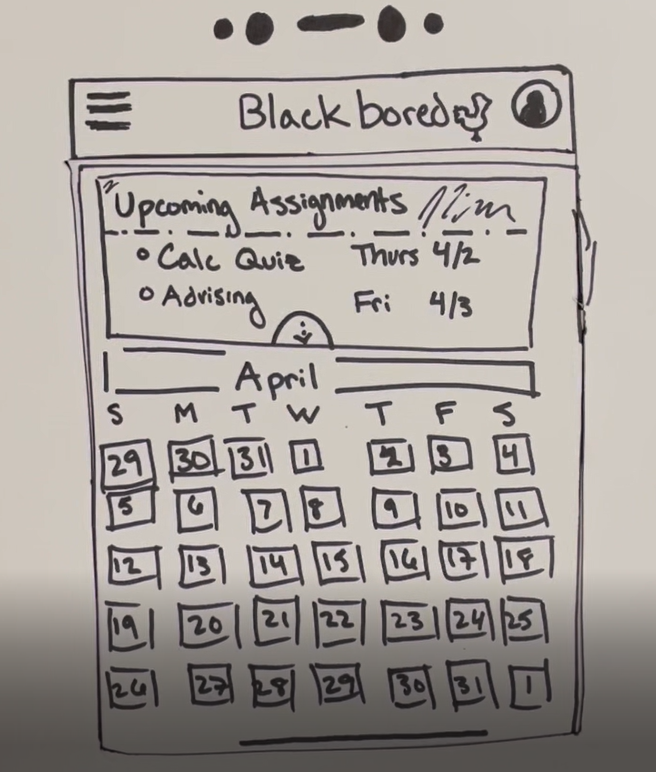 Blackbored
Upcoming Assignments
Calc Quiz Thurs 4/2
Advising Fri 4/3
April
S M T W T F S
29 30 31 1 2 3 4
5 6 7 8 9 10 11
12 13 14 15 16 17 18
19 20 21 22 23 24 25
26 27 28 29 30 31 1